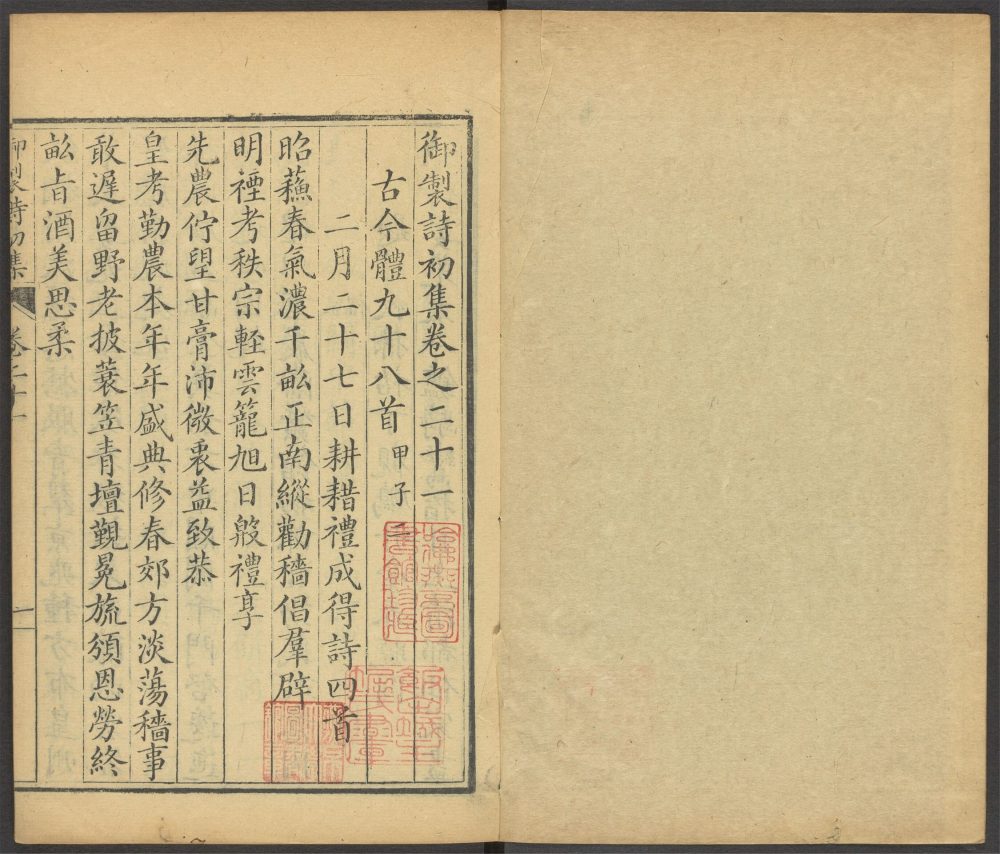 御製詩初集卷之二十一
古今體九十八首 甲子二
二月二十七日耕耤禮成得詩四首
昭蘓春氣濃千畝正南縱勸穡倡羣辟
明禋考秩宗輕雲籠旭日殷禮享
先農佇望甘膏沛微衷益致恭
皇考勤農本年年盛典修春郊方淡蕩穡事
敢遲留野老披蓑笠青壇觐冕旒頒恩勞終
畝旨酒美思柔
御製詩初集 卷二十一 一